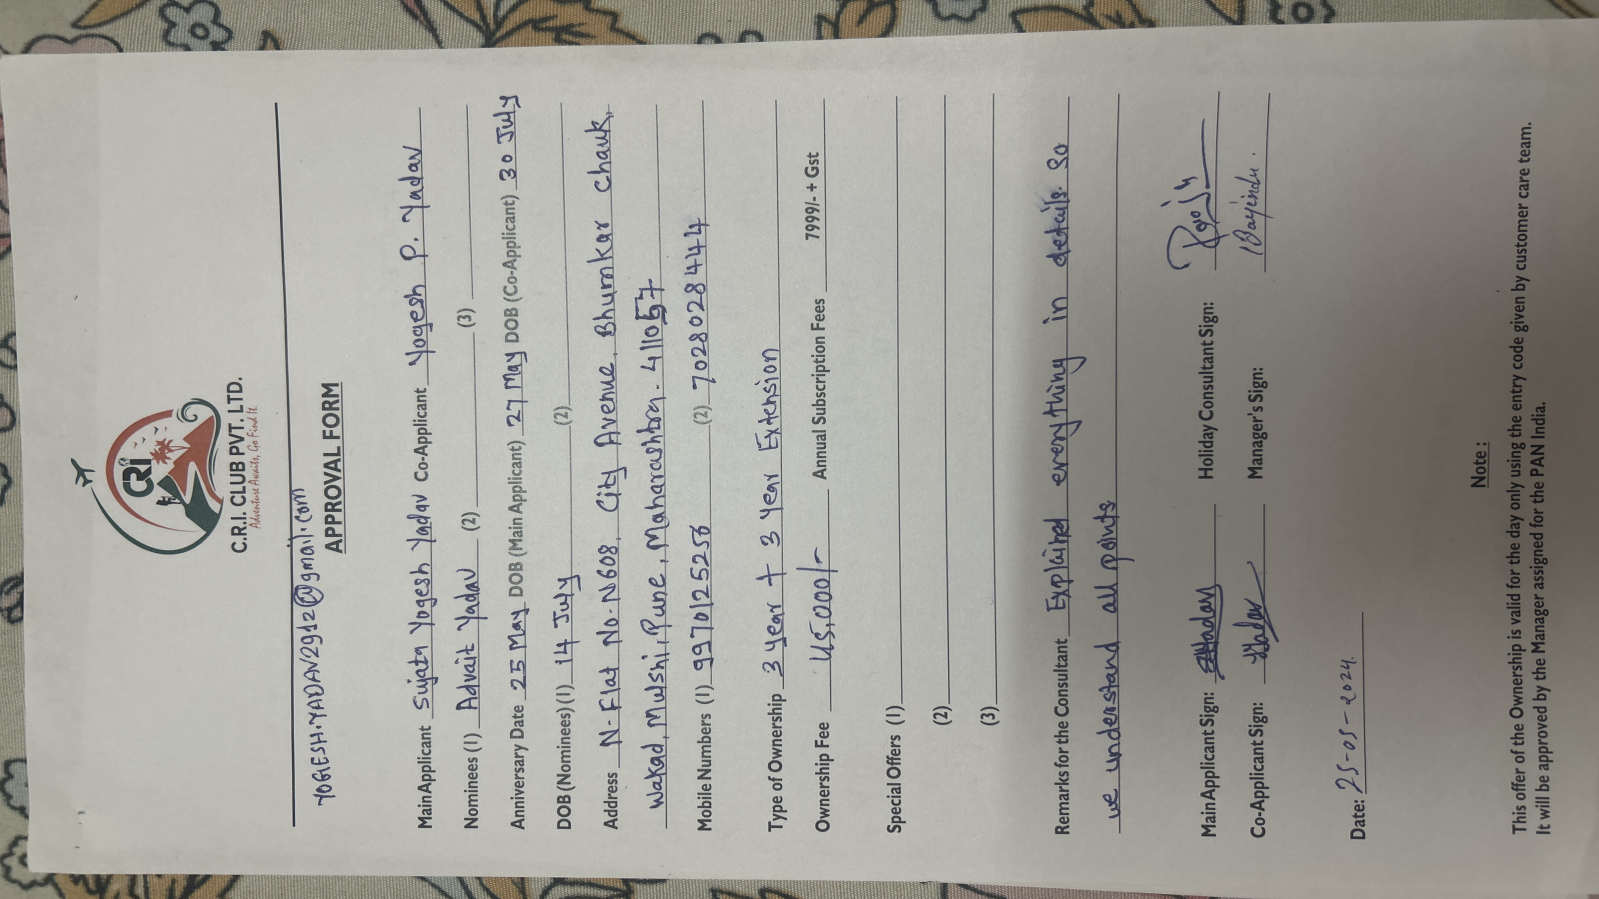 CRI
C.R.I. CLUB PVT. LTD.
Adventure Awaits, Go Find It.
YOGESH.YADAV2912@gmail.com
APPROVAL FORM
Main Applicant Sujata Yogesh Yadav Co-Applicant Yogesh P. Yadav
Nominees (1) Advait Yadav (2) (3)
Anniversary Date 25 May DOB (Main Applicant) 27 May DOB (Co-Applicant) 30 July
DOB (Nominees) (1) 14 July (2)
Address N-Flat No. N608, City Avenue, Bhumkar Chauk,
Wakad, Mulshi, Pune, Maharashtra - 411057
Mobile Numbers (1) 9970125256 (2) 7028028444
Type of Ownership 3 year + 3 Year Extension
Ownership Fee 45,000/- Annual Subscription Fees 7999/- + Gst
Special Offers (1)
(2)
(3)
Remarks for the Consultant Explained everything in details. So
we understand all points
Main Applicant Sign: Holiday Consultant Sign:
Co-Applicant Sign: Yadav Manager's Sign:
Date: 25-05-2024.
Note :
This offer of the Ownership is valid for the day only using the entry code given by customer care team.
It will be approved by the Manager assigned for the PAN India.